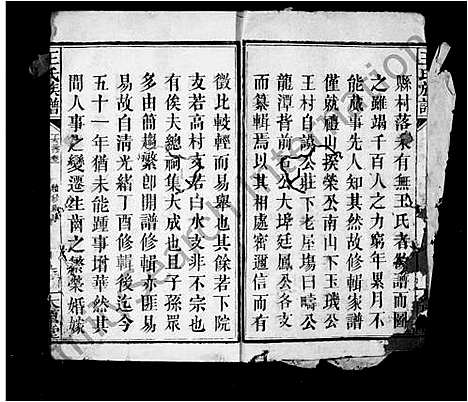 縣村落釆有無王氏者
之雖竭千百人之力窮年累月不
能蕆事先人知其然故修輯家譜
僅就禮山揆榮丕南山下玉璣公
王村自誇公莊下老屋塲曰疇公
龍潭背前右公大埤廷鳳公各支
而纂輯焉以其相處密邇信而有
徵比較輕而易舉也其餘若下院
支若高村支若白水支非不宗也
有俟夫總祠集大成也且子孫眾
多由簡趨繁卽開譜修輯亦匪易
易故自淸光緒丁酉修輯後迄今
五十一年猶未能踵事增華然其
間人事之變遷生齒之繁榮婚嫁
王氏族譜